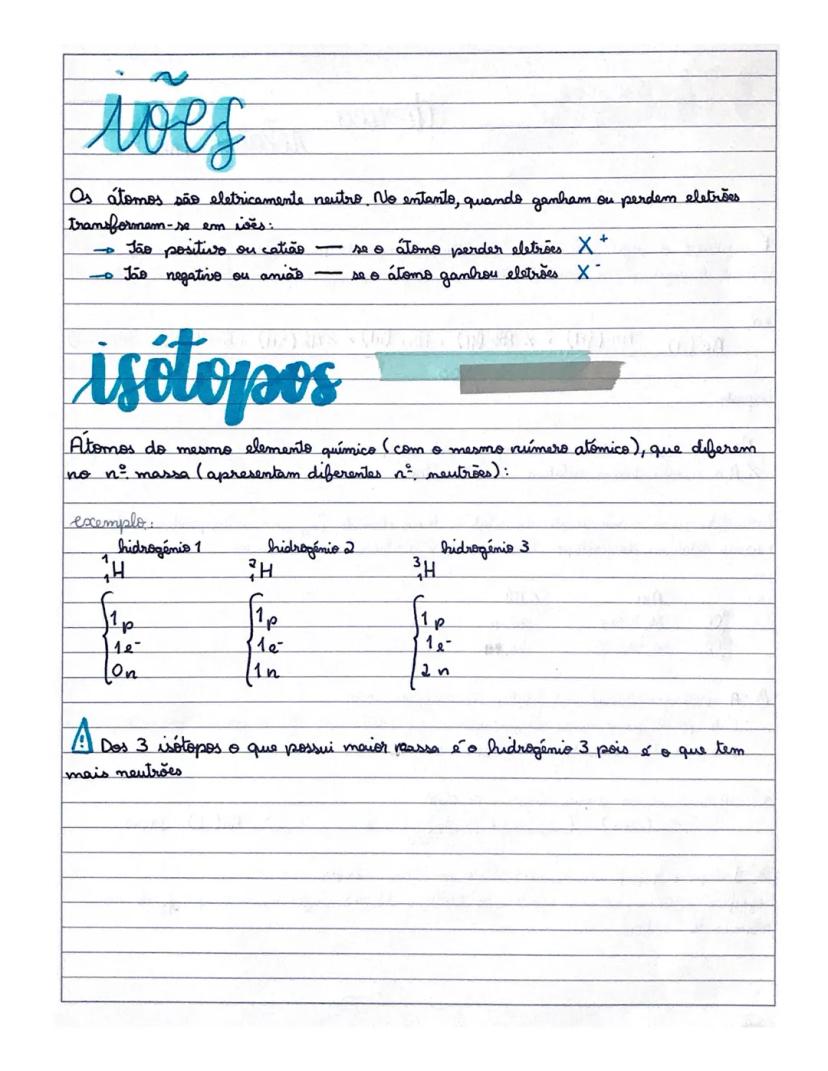 iões
Os átomos são eletricamente neutro. No entanto, quando ganham ou perdem eletrões
transformam-se em iões:
→ Ião positivo ou catião — se o átomo perder eletrões X⁺
→ Ião negativo ou anião — se o átomo ganhou eletrões X⁻
isótopos
Átomos do mesmo elemento químico (com o mesmo número atómico), que diferem
no nº. massa (apresentam diferentes nº. neutrões):
exemplo:
hidrogénio 1 hidrogénio 2 hidrogénio 3
¹₁H ²₁H ³₁H
1p 1p 1p
1e⁻ 1e⁻ 1e⁻
0n 1n 2n
⚠ Dos 3 isótopos o que possui maior massa é o hidrogénio 3 pois é o que tem
mais neutrões